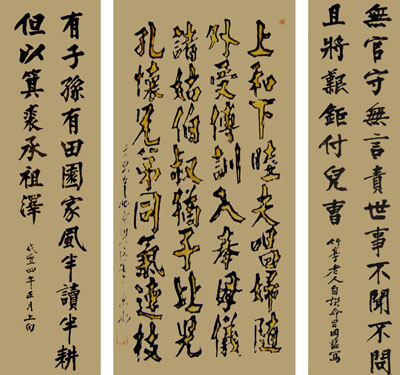 無官守無言責世事不聞不問
且將艱鉅付兒曹
竹亭老人自撰命男國藩寫
上和下睦夫唱婦隨
外受傅訓入奉母儀
諸姑伯叔猶子比兒
孔懷兄弟同氣連枝
有子孫有田園家風半讀半耕
但以箕裘承祖澤
咸豐四年正月上旬